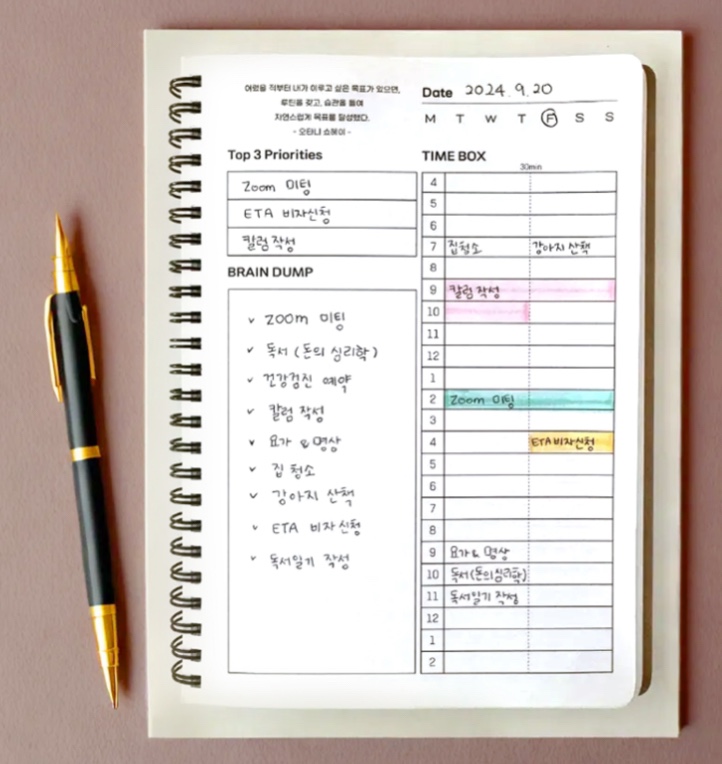 어렸을 적부터 내가 이루고 싶은 목표가 있으면,
루틴을 갖고, 습관을 들여
자연스럽게 목표를 달성했다.
- 오타니 쇼헤이 -
Date 2024. 9. 20
M T W T F S S
Top 3 Priorities
Zoom 미팅
ETA 비자신청
칼럼 작성
BRAIN DUMP
✓ ZOOM 미팅
✓ 독서 (돈의 심리학)
✓ 건강검진 예약
✓ 칼럼 작성
✓ 요가 & 명상
✓ 집 청소
✓ 강아지 산책
✓ ETA 비자신청
✓ 독서일기 작성
TIME BOX
30min
4
5
6
7 집청소 강아지 산책
8
9 칼럼 작성
10
11
12
1
2 Zoom 미팅
3
4 ETA 비자신청
5
6
7
8
9 요가 & 명상
10 독서(돈의 심리학)
11 독서일기 작성
12
1
2